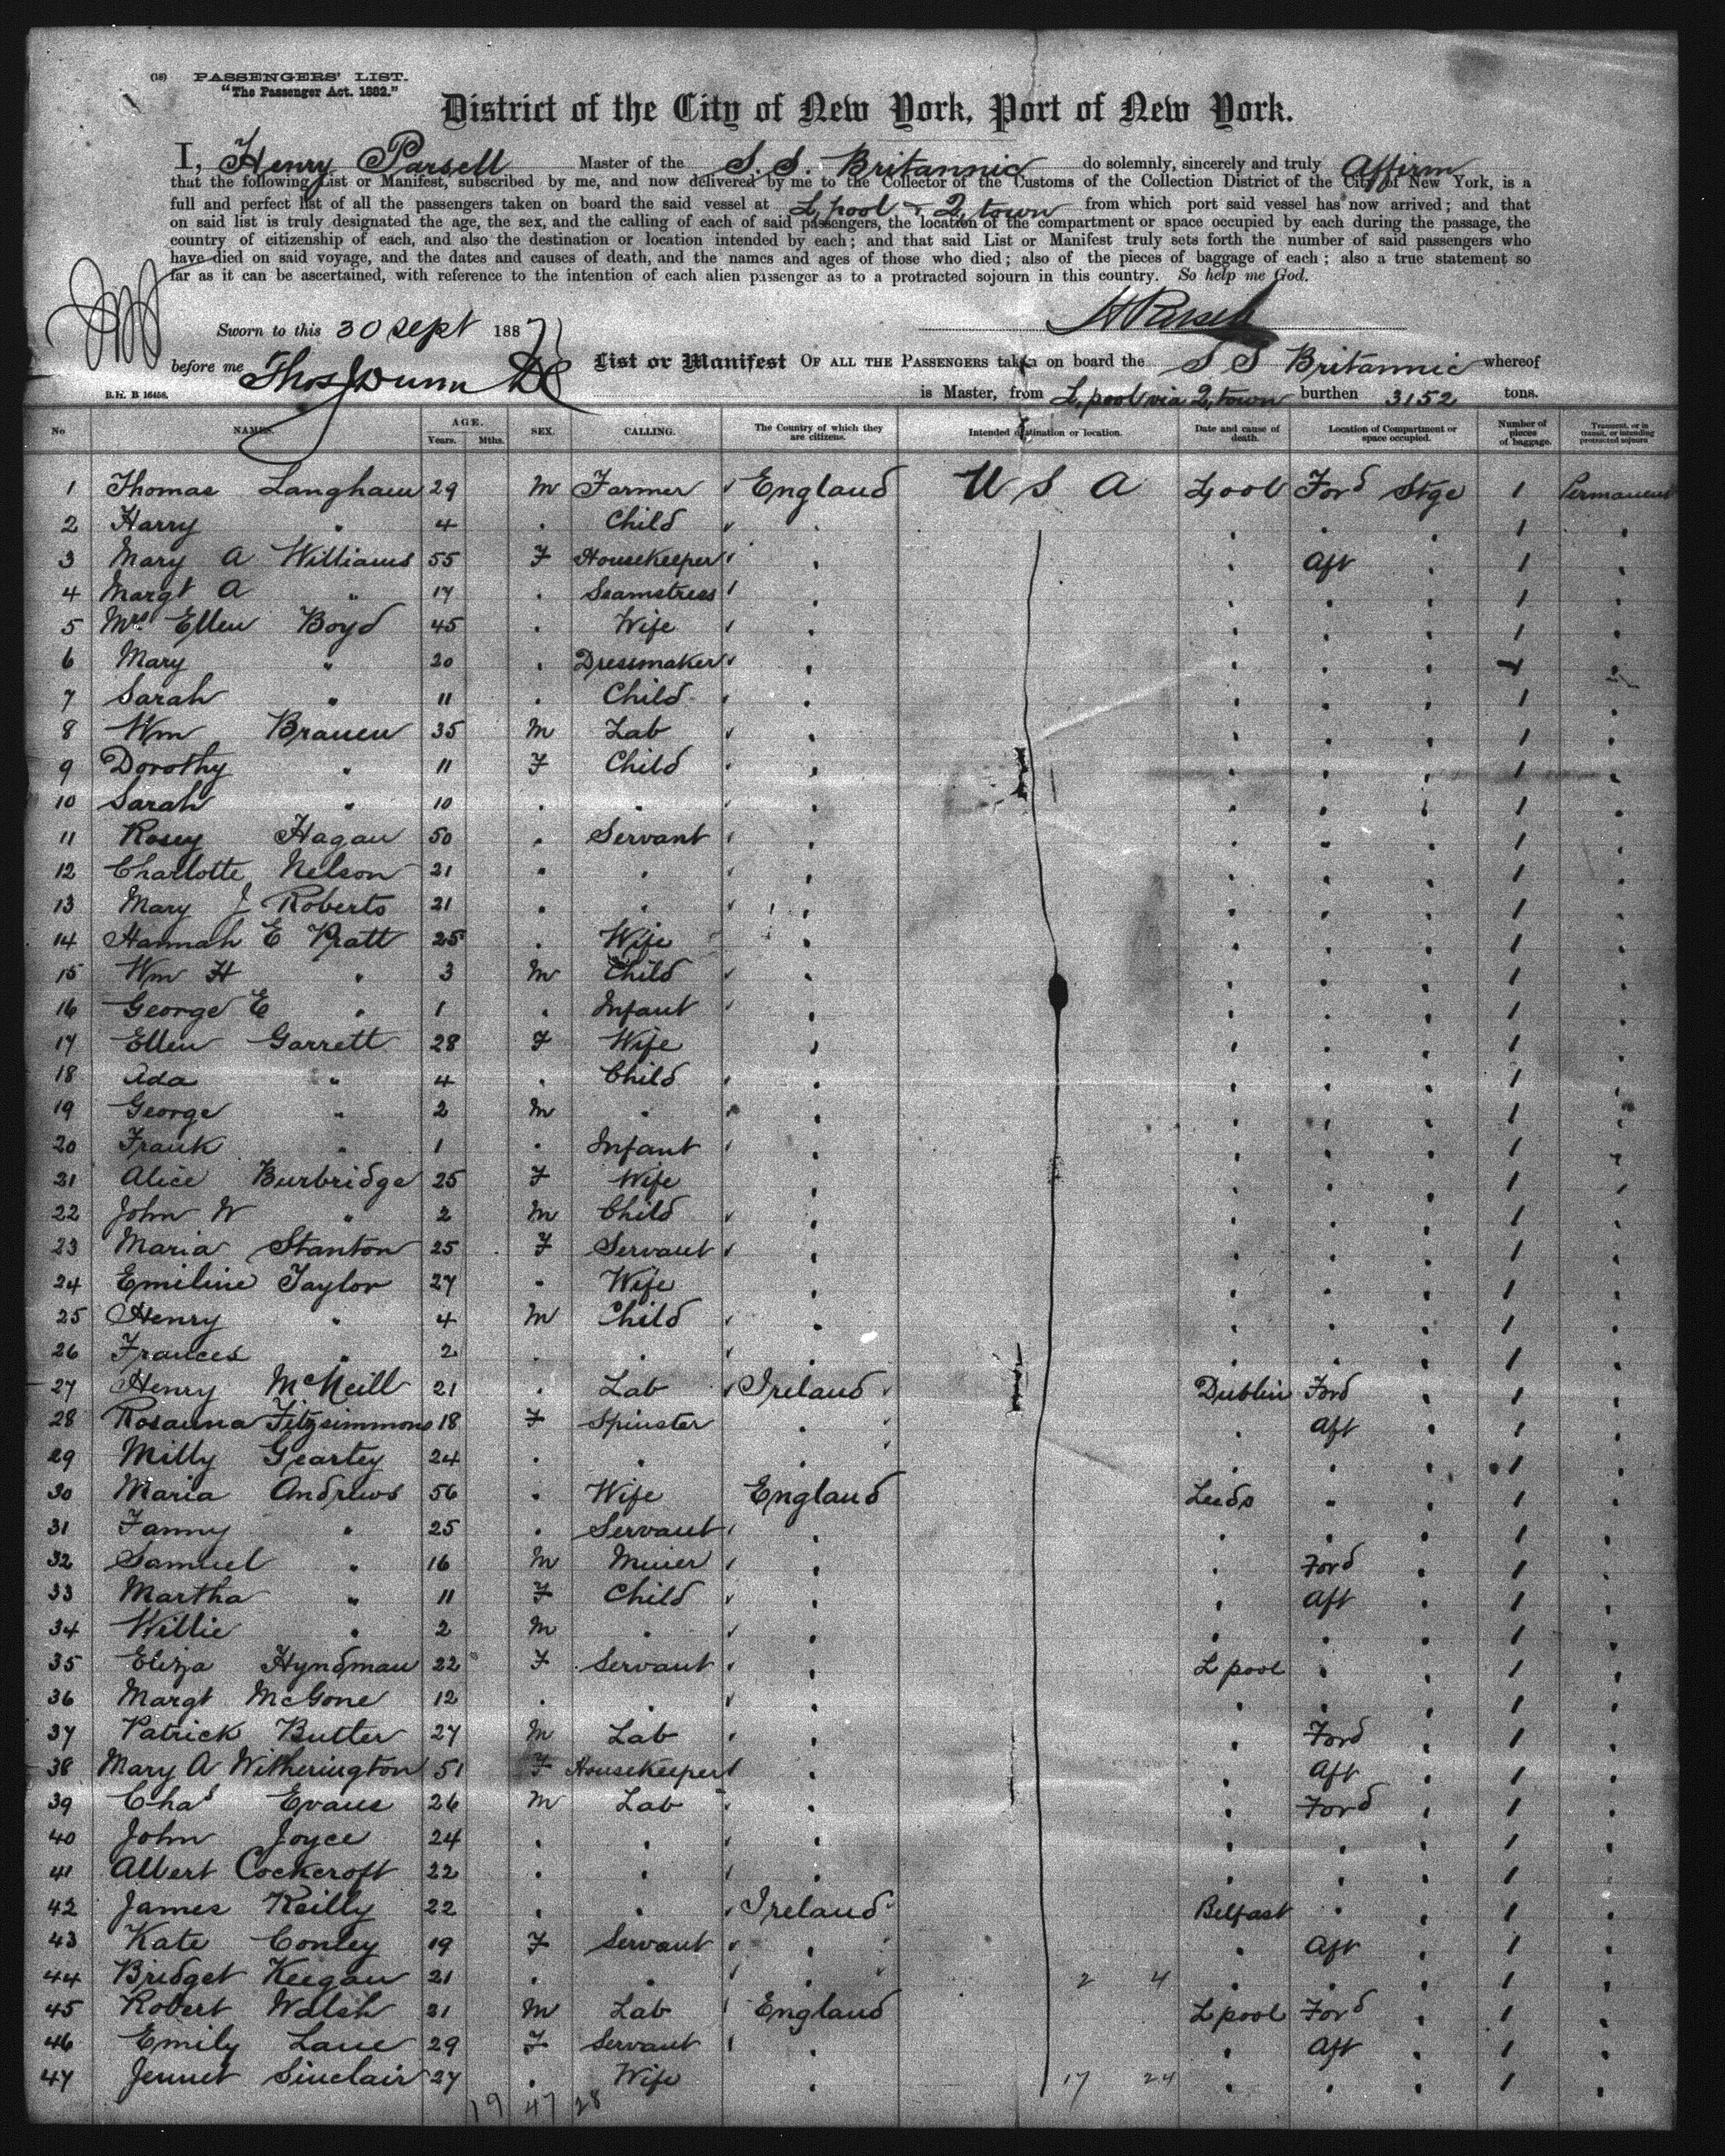 (18) PASSENGERS' LIST.
"The Passenger Act. 1882."
District of the City of New York, Port of New York.
I, Henry Parsell Master of the S. S. Britannic do solemnly, sincerely and truly Affirm
that the following List or Manifest, subscribed by me, and now delivered by me to the Collector of the Customs of the Collection District of the City of New York, is a
full and perfect list of all the passengers taken on board the said vessel at L,pool & Q,town from which port said vessel has now arrived; and that
on said list is truly designated the age, the sex, and the calling of each of said passengers, the location of the compartment or space occupied by each during the passage, the
country of citizenship of each, and also the destination or location intended by each; and that said List or Manifest truly sets forth the number of said passengers who
have died on said voyage, and the dates and causes of death, and the names and ages of those who died; also of the pieces of baggage of each; also a true statement so
far as it can be ascertained, with reference to the intention of each alien passenger as to a protracted sojourn in this country. So help me God.
Sworn to this 30 Sept 1887 H Parsell
before me Thos Dunn List or Manifest OF ALL THE PASSENGERS taken on board the S S Britannic whereof
B.H. B 16458. is Master, from L,pool via Q,town burthen 3152 tons.
No NAMES. AGE. Years. Mths. SEX. CALLING. The Country of which they are citizens. Intended destination or location. Date and cause of death. Location of Compartment or space occupied. Number of pieces of baggage. Transient, or in transit, or intending protracted sojourn
1 Thomas Langham 29 M Farmer England U S A L,pool Ford Stge 1 Permanent
2 Harry " 4 " Child " " " " 1 "
3 Mary A Williams 55 F Housekeeper " " Aft " 1 "
4 Margt A " 17 " Seamstress " " " " 1 "
5 Mrs Ellen Boyd 45 " Wife " " " " 1 "
6 Mary " 20 " Dressmaker " " " " 1 "
7 Sarah " 11 " Child " " " " 1 "
8 Wm Brauen 35 M Lab " " " " 1 "
9 Dorothy " 11 F Child " " " " 1 "
10 Sarah " 10 " " " " " " 1 "
11 Rosey Hagan 50 " Servant " " " " 1 "
12 Charlotte Nelson 21 " " " " " " 1 "
13 Mary J Roberts 21 " " " " " " 1 "
14 Hannah E Pratt 25 " Wife " " " " 1 "
15 Wm H " 3 M Child " " " " 1 "
16 George E " 1 " Infant " " " " 1 "
17 Ellen Garrett 28 F Wife " " " " 1 "
18 Ada " 4 " Child " " " " 1 "
19 George " 2 M " " " " " 1 "
20 Frank " 1 " Infant " " " " 1 "
21 Alice Burbridge 25 F Wife " " " " 1 "
22 John W " 2 M Child " " " " 1 "
23 Maria Stanton 25 F Servant " " " " 1 "
24 Emiline Taylor 27 " Wife " " " " 1 "
25 Henry " 4 M Child " " " " 1 "
26 Frances " 2 " " " " " " 1 "
27 Henry McNeill 21 " Lab Ireland Dublin Ford " 1 "
28 Rosanna Fitzsimmons 18 F Spinster " " Aft " 1 "
29 Milly Geartey 24 " " " " " " 1 "
30 Maria Andrews 56 " Wife England Leeds " " 1 "
31 Fanny " 25 " Servant " " " " 1 "
32 Samuel " 16 M Miner " " Ford " 1 "
33 Martha " 11 F Child " " Aft " 1 "
34 Willie " 2 M " " " " " 1 "
35 Eliza Hyndman 22 F Servant " L pool " " 1 "
36 Margt McGone 12 " " " " " " 1 "
37 Patrick Butler 27 M Lab " " Ford " 1 "
38 Mary A Witherington 51 F Housekeeper " " Aft " 1 "
39 Chas Evans 26 M Lab " " Ford " 1 "
40 John Joyce 24 " " " " " " 1 "
41 Albert Cockcroft 22 " " " " " " 1 "
42 James Reilly 22 " " Ireland Belfast " " 1 "
43 Kate Conley 19 F Servant " " Aft " 1 "
44 Bridget Keegan 21 " " " 2 4 " " " 1 "
45 Robert Walsh 21 M Lab England L pool Ford " 1 "
46 Emily Lane 29 F Servant " " Aft " 1 "
47 Jennet Sinclair 27 " Wife " 17 24 " " " 1 "
19 47 28